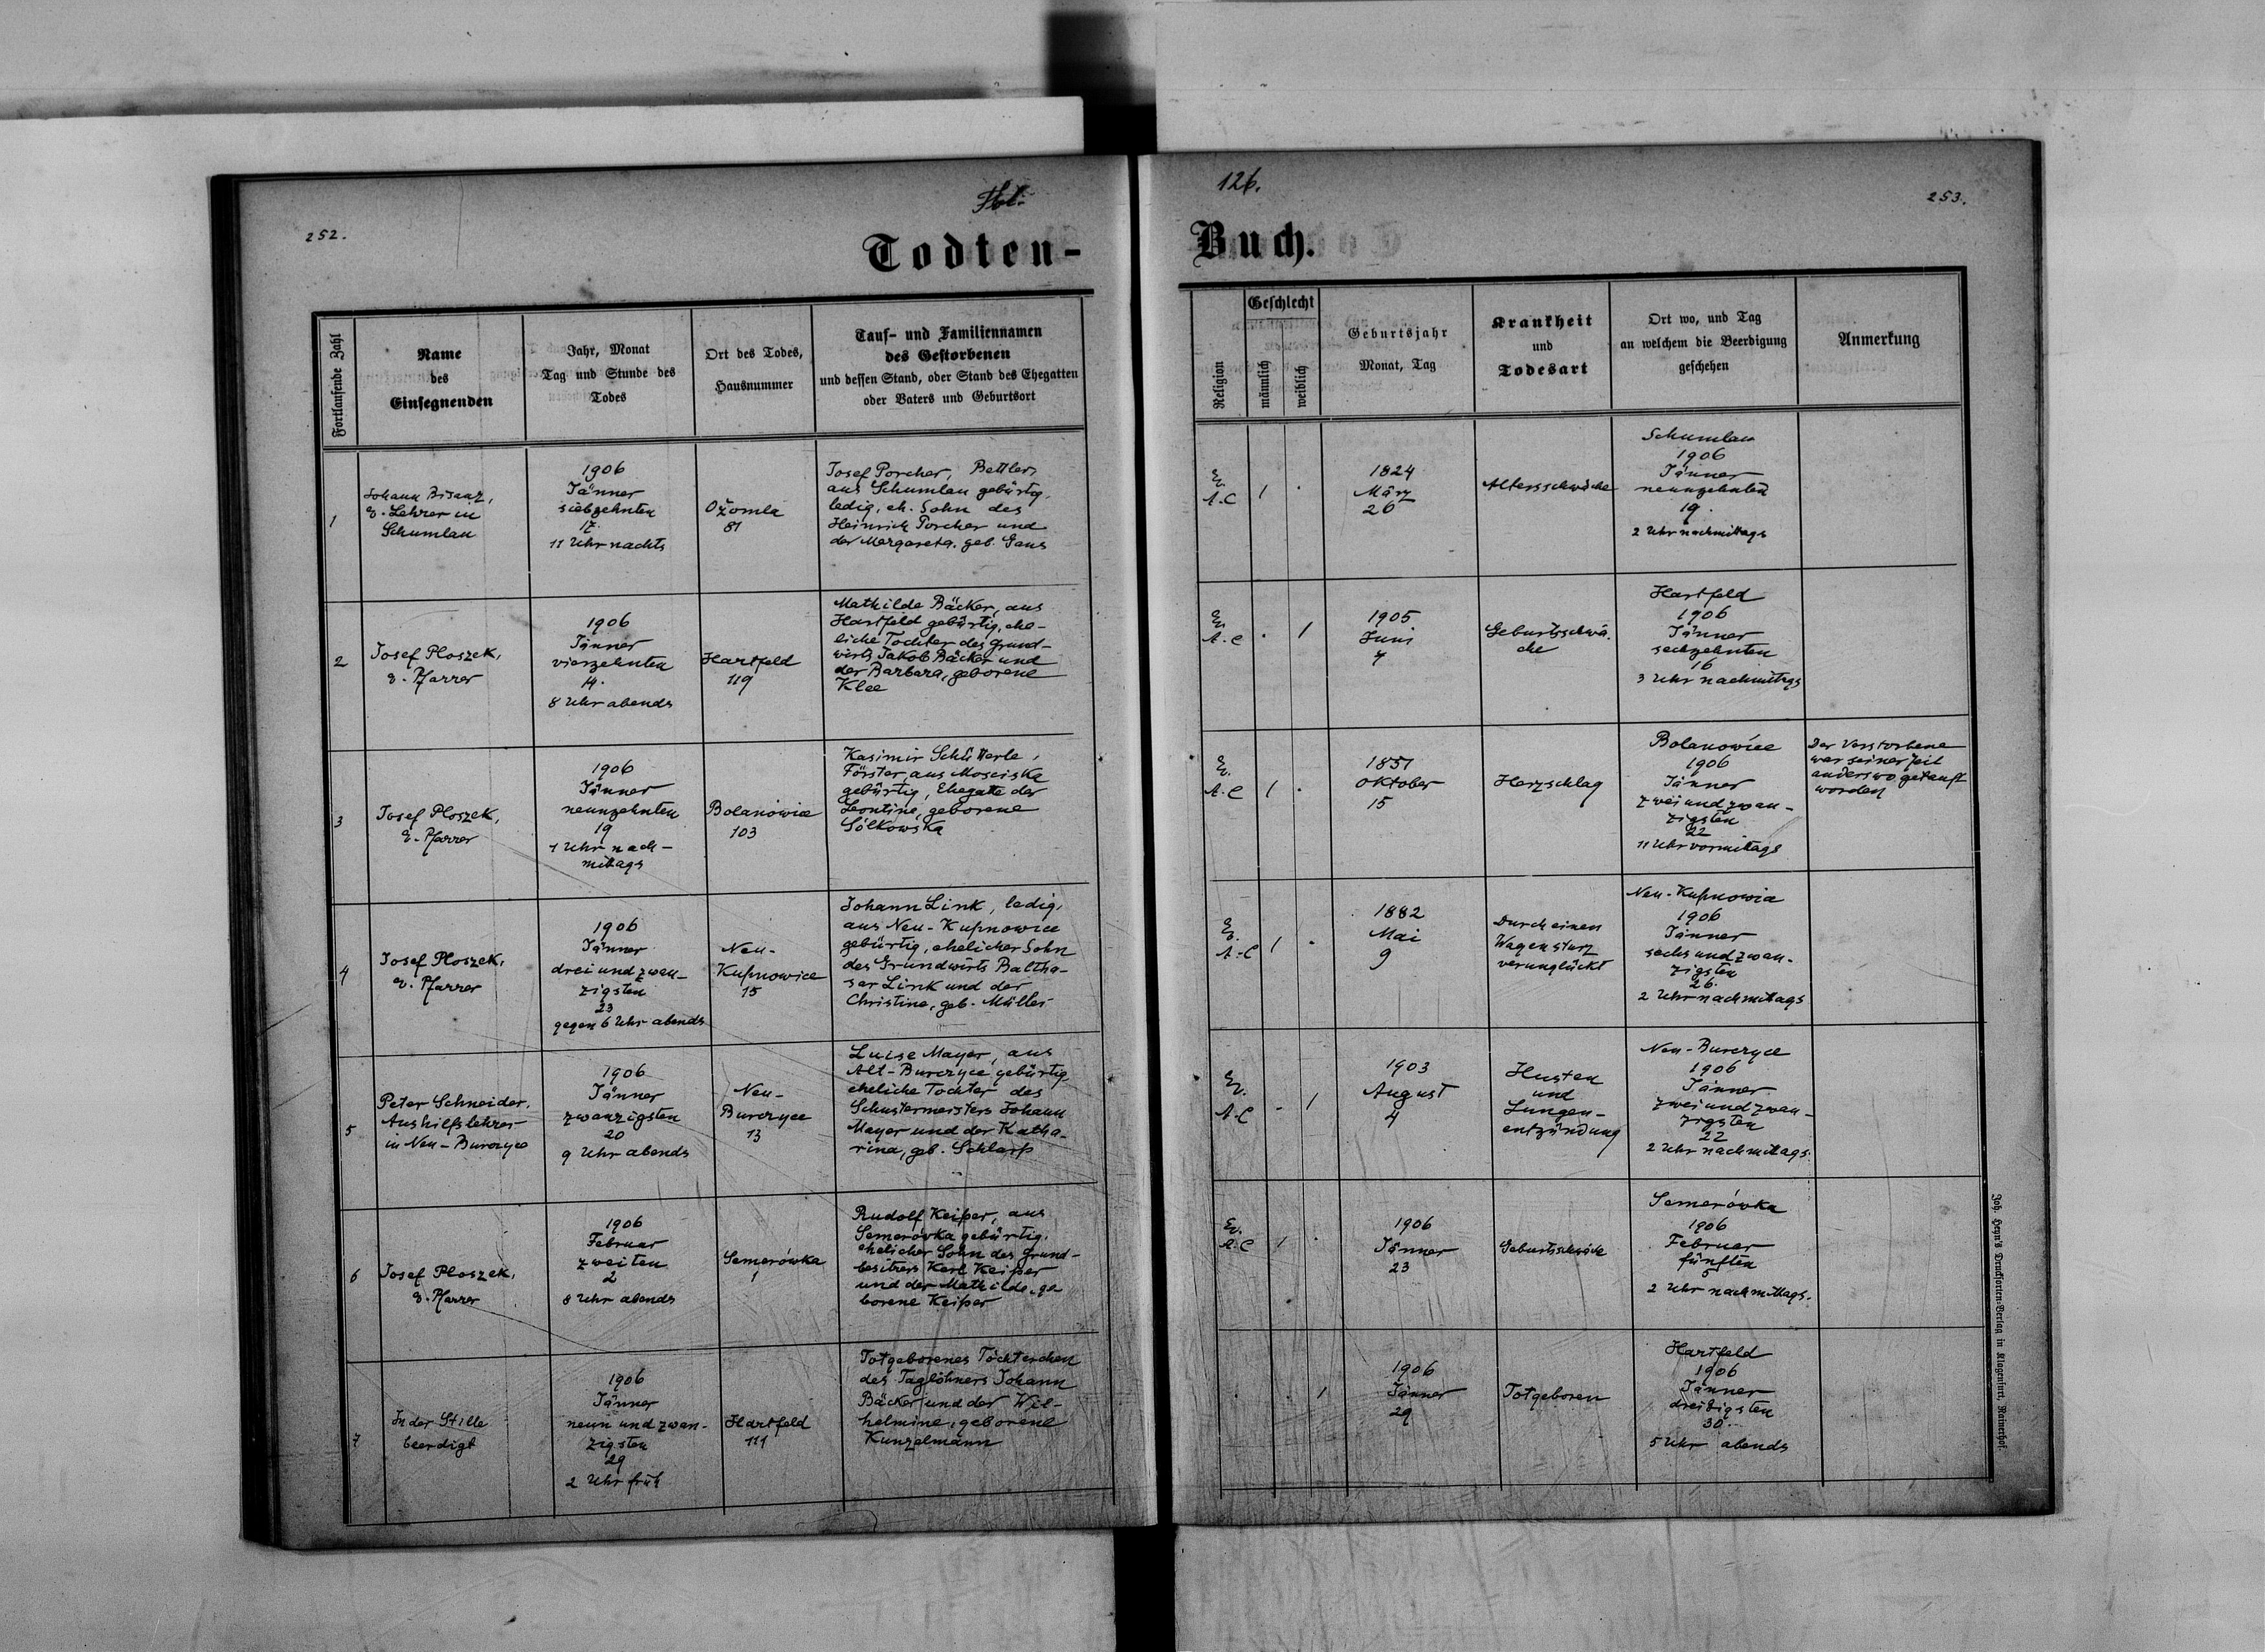 252.
126.
253.
Todten-
Buch.
Fortlaufende Zahl
Name
des
Einsegnenden
Jahr, Monat
Tag und Stunde des
Todes
Ort des Todes,
Hausnummer
Tauf- und Familiennamen
des Gestorbenen
und dessen Stand, oder Stand des Ehegatten
oder Vaters und Geburtsort
Religion
Geschlecht
männlich
weiblich
Geburtsjahr
Monat, Tag
Krankheit
und
Todesart
Ort wo, und Tag
an welchem die Beerdigung
geschehen
Anmerkung
1
Johann Bisanz,
e. Lehrer in
Schumlau
1906
Jänner
siebzehnten
17.
11 Uhr nachts
Ożomla
81
Josef Porcher, Bettler,
aus Schumlau gebürtig,
ledig, eh. Sohn des
Heinrich Porcher und
der Margareta, geb. Gans
Ev.
A.C
1
1824
März
26
Altersschwäche
Schumlau
1906
Jänner
neunzehnten
19.
2 Uhr nachmittags
2
Josef Ploszek,
e. Pfarrer
1906
Jänner
vierzehnten
14.
8 Uhr abends
Hartfeld
119
Mathilde Bäcker, aus
Hartfeld gebürtig, ehe-
liche Tochter des Grund-
wirts Jakob Bäcker und
der Barbara, geborene
Klee
Ev.
A.C
1
1905
Juni
7
Geburtsschwä-
che
Hartfeld
1906
Jänner
sechzehnten
16
3 Uhr nachmittags
3
Josef Ploszek,
e. Pfarrer
1906
Jänner
neunzehnten
19
1 Uhr nach-
mittags
Bolanowice
103
Kasimir Schütterle,
Förster, aus Mosciska
gebürtig, Ehegatte der
Leontine, geborene
Sólkowska
Ev.
A.C
1
1851
Oktober
15
Herzschlag
Bolanowice
1906
Jänner
zwei und zwan-
zigsten
22
11 Uhr vormittags
Der Verstorbene
war seiner Zeit
anderswo getauft
worden
4
Josef Ploszek,
e. Pfarrer
1906
Jänner
drei und zwan-
zigsten
23
gegen 6 Uhr abends
Neu-
Kupnowice
15
Johann Link, ledig,
aus Neu-Kupnowice
gebürtig, ehelicher Sohn
des Grundwirts Baltha-
sar Link und der
Christine, geb. Müller
Ev.
A.C
1
1882
Mai
9
Durch einen
Wagensturz
verunglückt
Neu-Kupnowice
1906
Jänner
sechs und zwan-
zigsten
26.
2 Uhr nachmittags
5
Peter Schneider,
Aushilfslehrer
in Neu-Burczyce
1906
Jänner
zwanzigsten
20
9 Uhr abends
Neu-
Burczyce
13
Luise Mayer, aus
Alt-Burczyce gebürtig,
eheliche Tochter des
Schustermeisters Johann
Mayer und der Katha-
rina, geb. Schlarp
Ev.
A.C
1
1903
August
4
Husten
und
Lungen-
entzündung
Neu-Burczyce
1906
Jänner
zwei und zwan-
zigsten
22
2 Uhr nachmittags
6
Josef Ploszek,
e. Pfarrer
1906
Februar
zweiten
2
8 Uhr abends
Semerówka
1
Rudolf Keiper, aus
Semerówka gebürtig,
ehelicher Sohn des Grund-
besitzers Karl Keiper
und der Mathilde, ge
borene Keiper
Ev.
A.C
1
1906
Jänner
23
Geburtsschwäche
Semerówka
1906
Februar
fünften
5
2 Uhr nachmittags.
7
In der Stille
beerdigt
1906
Jänner
neun und zwan-
zigsten
29
2 Uhr früh
Hartfeld
111
Totgeborenes Töchterchen
des Taglöhners Johann
Bäcker und der Wil-
helmine, geborene
Kunzelmann
1
1906
Jänner
29
Totgeboren
Hartfeld
1906
Jänner
dreißigsten
30.
5 Uhr abends
Joh. Heyn's Drucksorten-Verlag in Klagenfurt, Rainerhof.